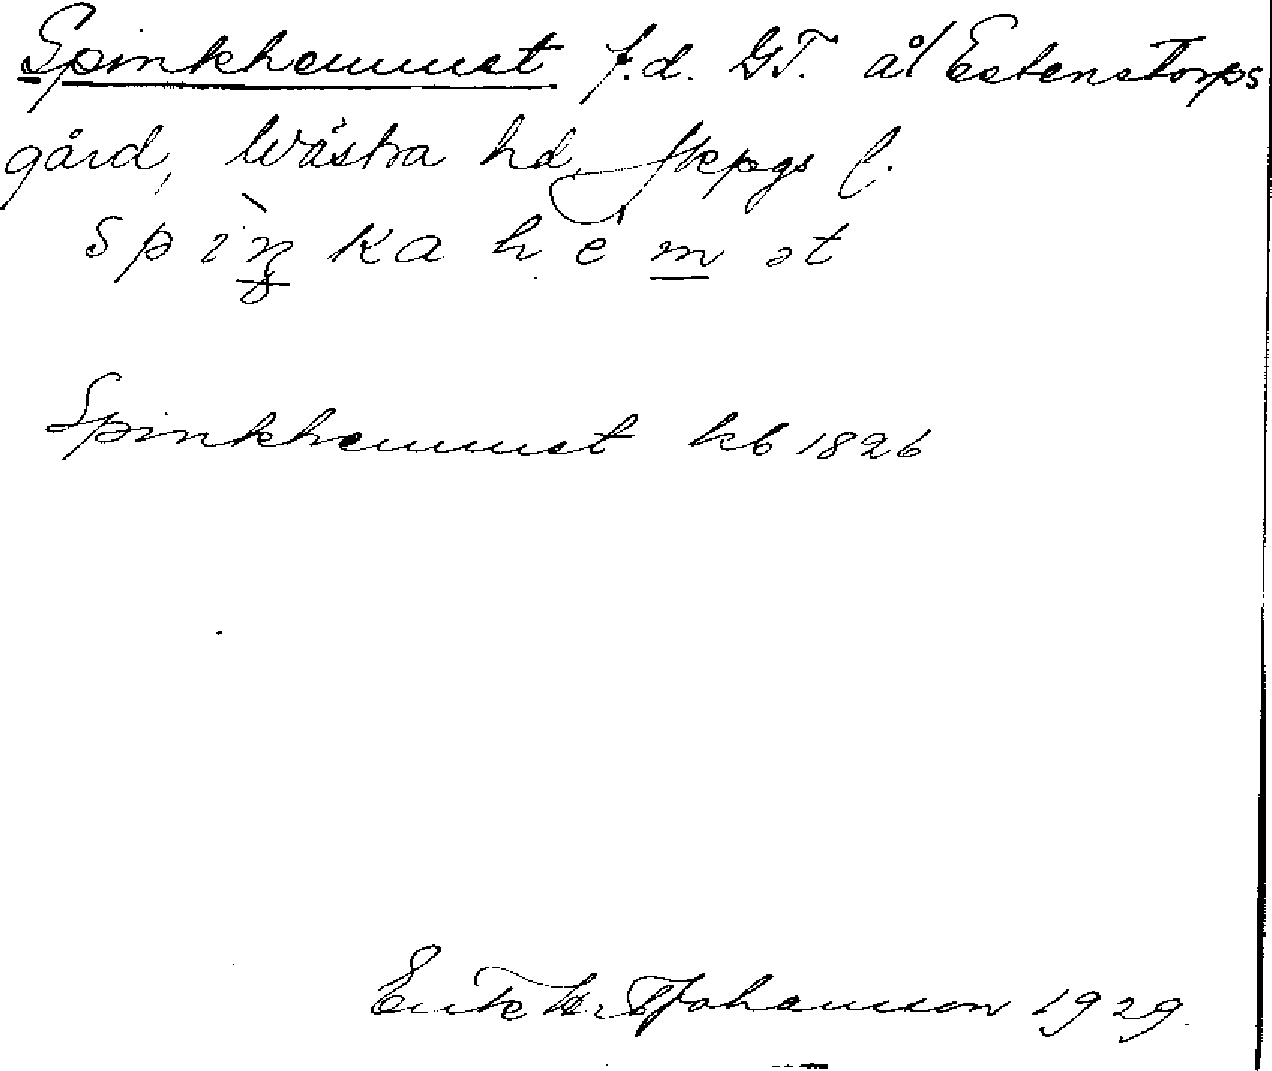 Spinkhemmet f.d. GT. å/ Estenstorps
gård, Wästra hd, Jkpgs l.
spiŋkahem ət
Spinkhemmet kb 1826
Erik H. Johansson 1929